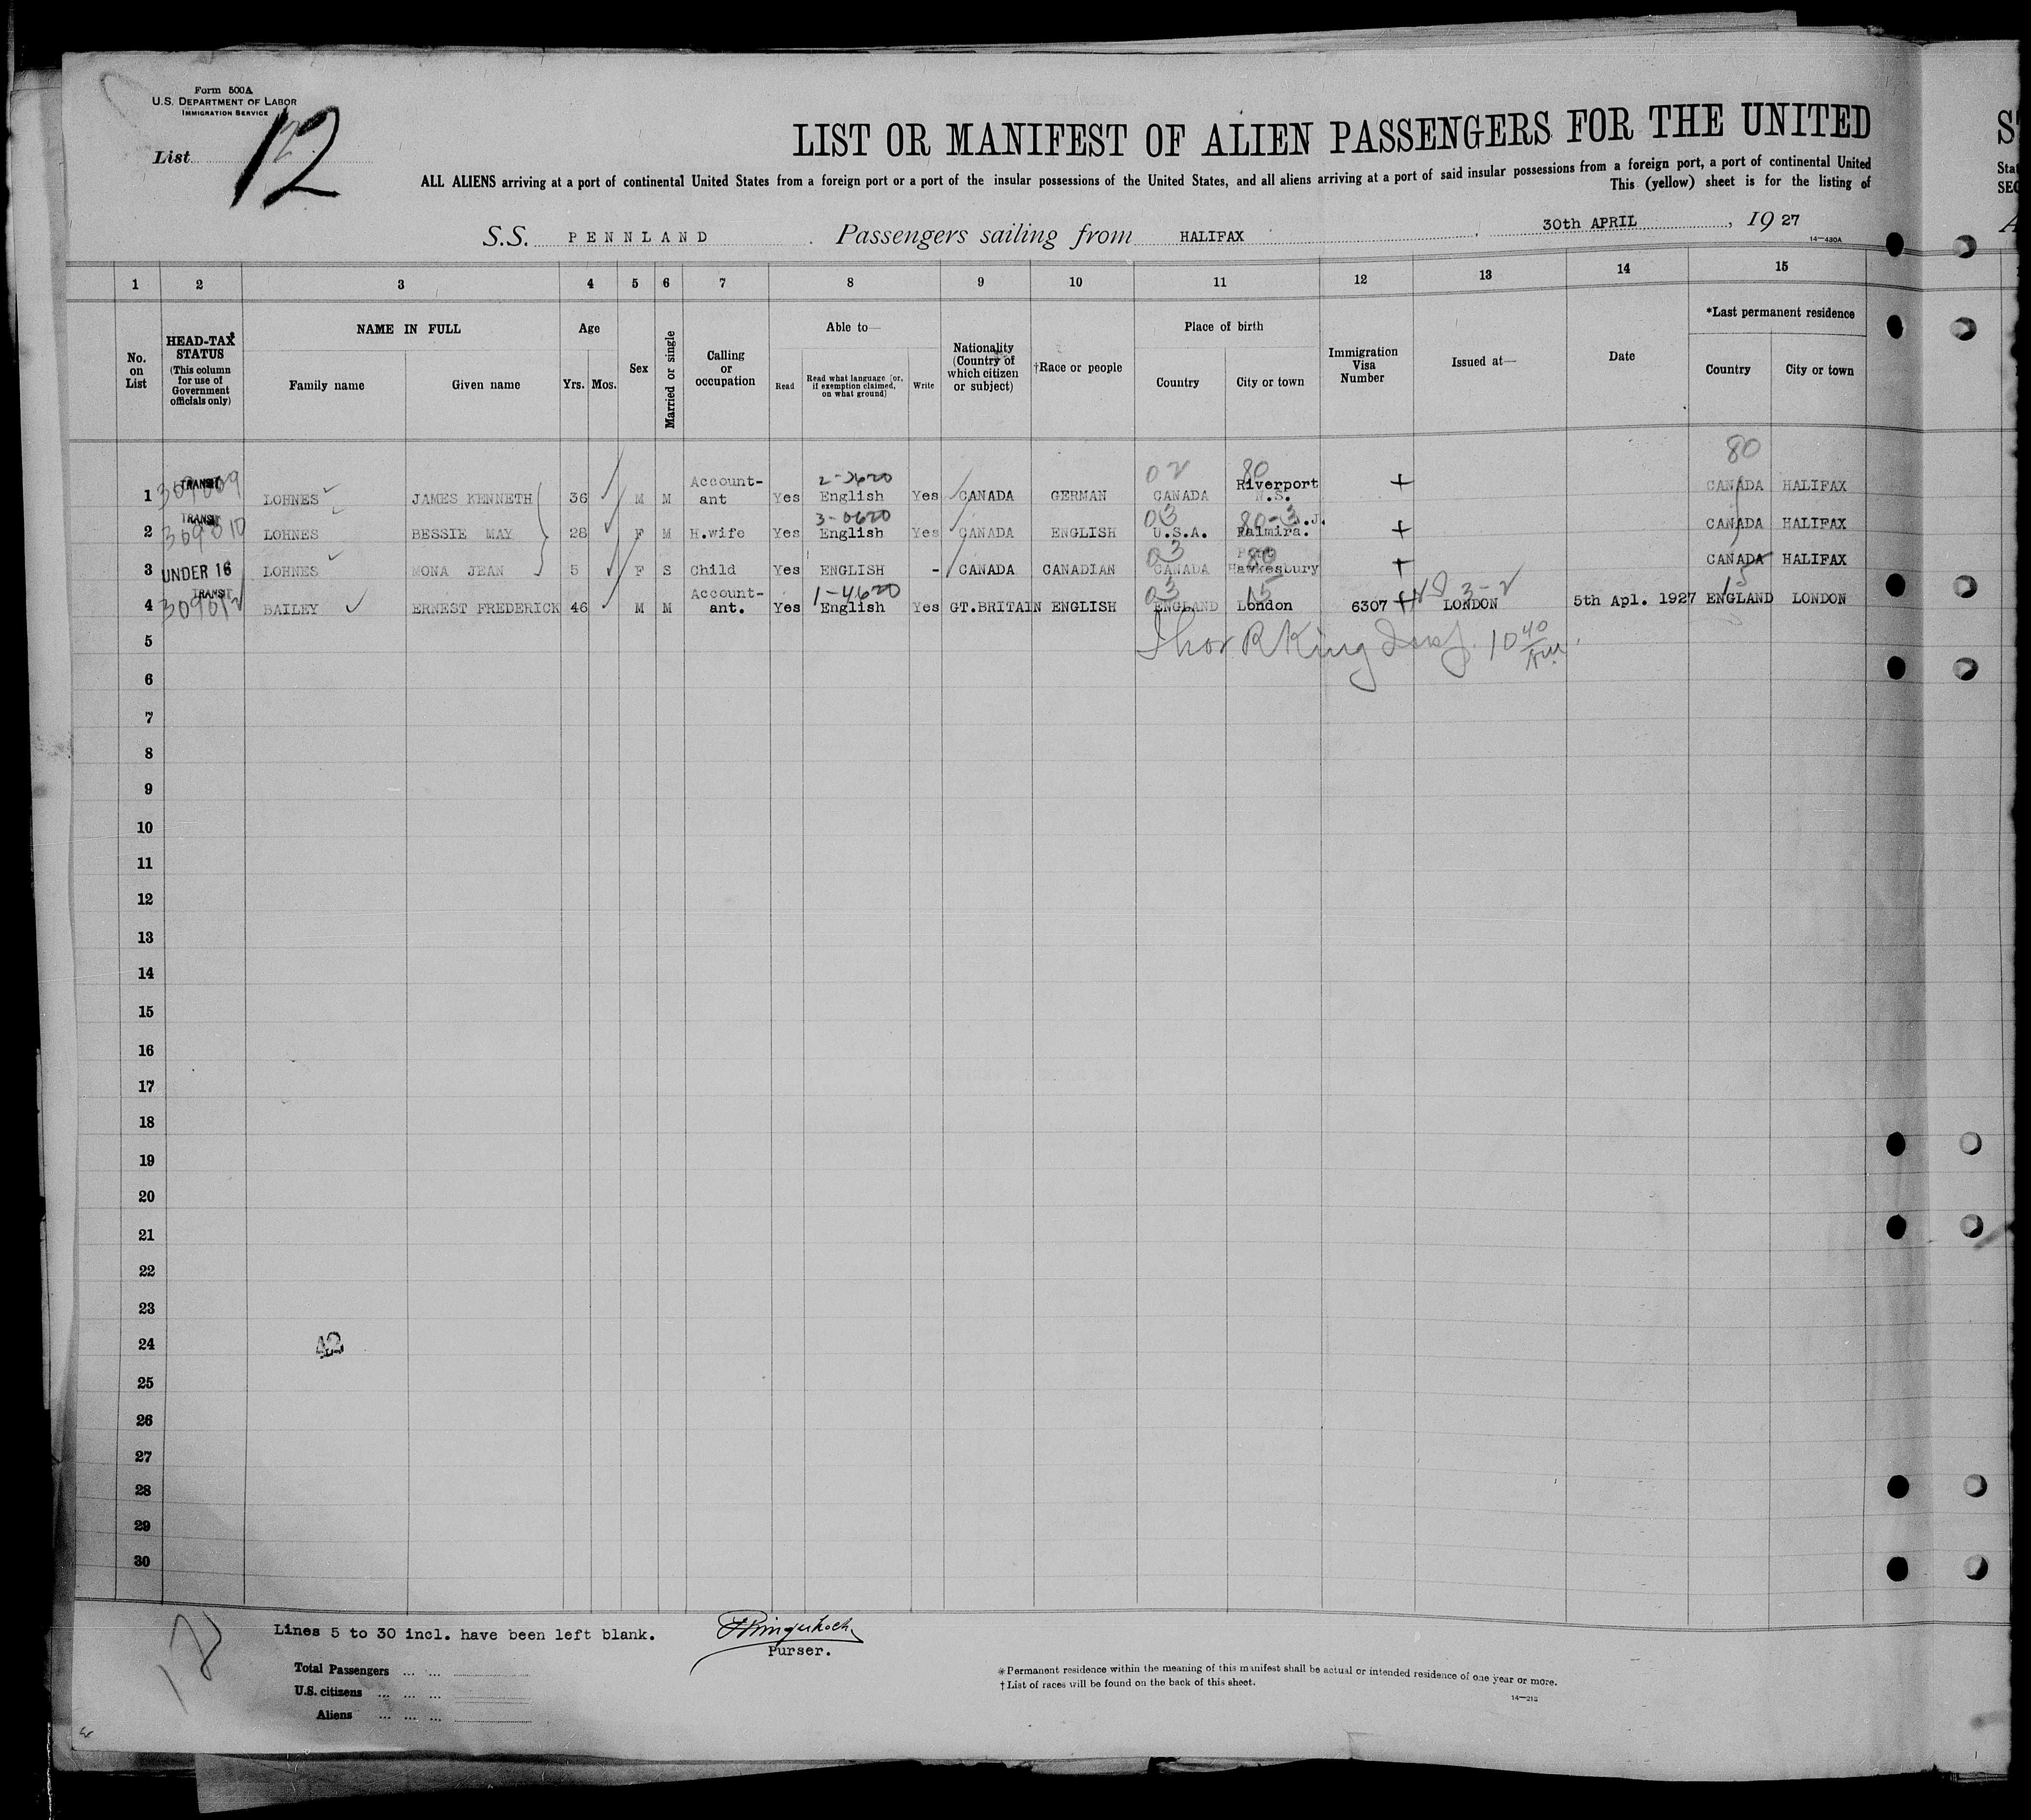 Form 500A
U.S. DEPARTMENT OF LABOR
IMMIGRATION SERVICE
List 12
LIST OR MANIFEST OF ALIEN PASSENGERS FOR THE UNITED
ALL ALIENS arriving at a port of continental United States from a foreign port or a port of the insular possessions of the United States, and all aliens arriving at a port of said insular possessions from a foreign port, a port of continental United
This (yellow) sheet is for the listing of
S.S. PENNLAND Passengers sailing from HALIFAX, 30th APRIL, 1927
14—430A
1 2 3 4 5 6 7 8 9 10 11 12 13 14 15
No. on List
HEAD-TAX STATUS (This column for use of Government officials only)
NAME IN FULL
Family name Given name
Age
Yrs. Mos.
Sex
Married or single
Calling or occupation
Able to—
Read Read what language [or, if exemption claimed, on what ground] Write
Nationality (Country of which citizen or subject)
†Race or people
Place of birth
Country City or town
Immigration Visa Number
Issued at—
Date
*Last permanent residence
Country City or town
80
TRANSIT 2-3620 02 80
1 LOHNES JAMES KENNETH 36 M M Account-ant Yes English Yes CANADA GERMAN CANADA Riverport N.S. + CANADA HALIFAX
TRANSIT 3-0620 03 80-3
2 LOHNES BESSIE MAY 28 F M H.wife Yes English Yes CANADA ENGLISH U.S.A. Palmira. + CANADA HALIFAX
03 80
3 UNDER 16 LOHNES MONA JEAN 5 F S Child Yes ENGLISH - CANADA CANADIAN CANADA Hawkesbury + CANADA HALIFAX
TRANSIT 1-4620 03 15
4 BAILEY ERNEST FREDERICK 46 M M Account-ant. Yes English Yes GT.BRITAIN ENGLISH ENGLAND London 6307 + LONDON 5th Apl. 1927 ENGLAND LONDON
5 King Insp. 10 40
6
7
8
9
10
11
12
13
14
15
16
17
18
19
20
21
22
23
24
25
26
27
28
29
30
12
Lines 5 to 30 incl. have been left blank.
Purser.
Total Passengers
U.S. citizens
Aliens
*Permanent residence within the meaning of this manifest shall be actual or intended residence of one year or more.
†List of races will be found on the back of this sheet.
14—213